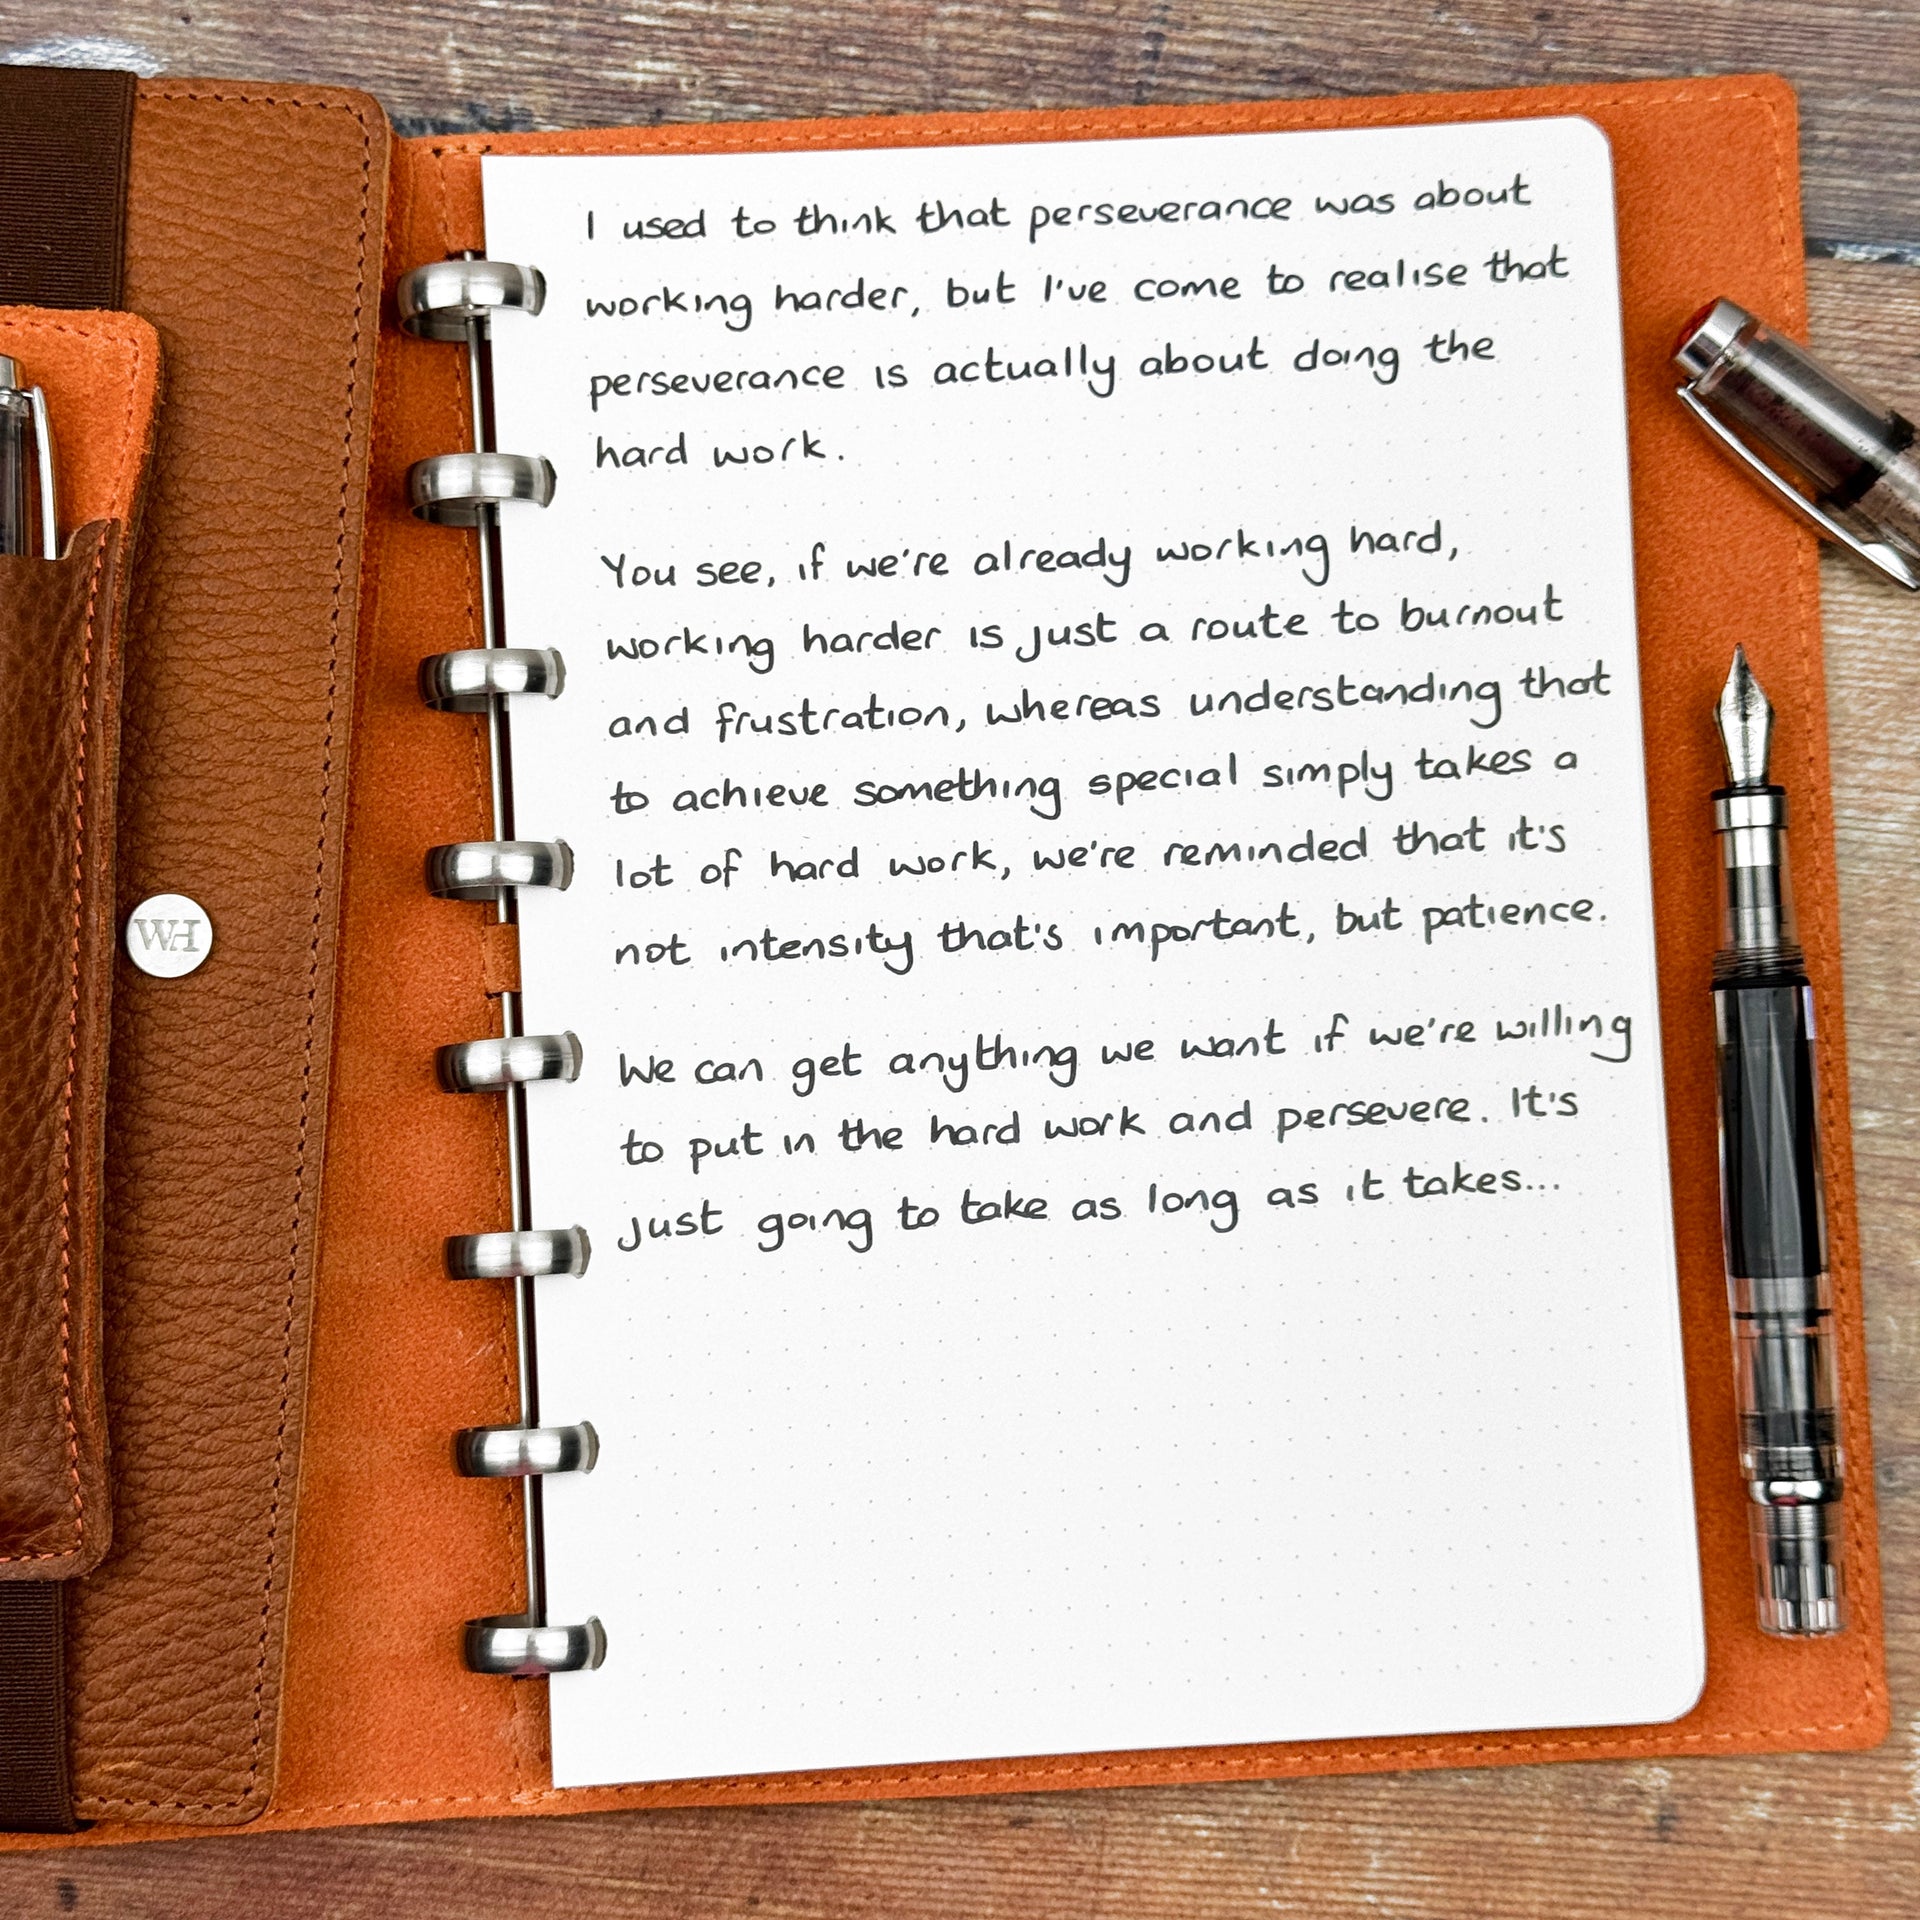 I used to think that perseverance was about
working harder, but I've come to realise that
perseverance is actually about doing the
hard work.
You see, if we're already working hard,
working harder is just a route to burnout
and frustration, whereas understanding that
to achieve something special simply takes a
lot of hard work, we're reminded that it's
not intensity that's important, but patience.
We can get anything we want if we're willing
to put in the hard work and persevere. It's
just going to take as long as it takes...
WH